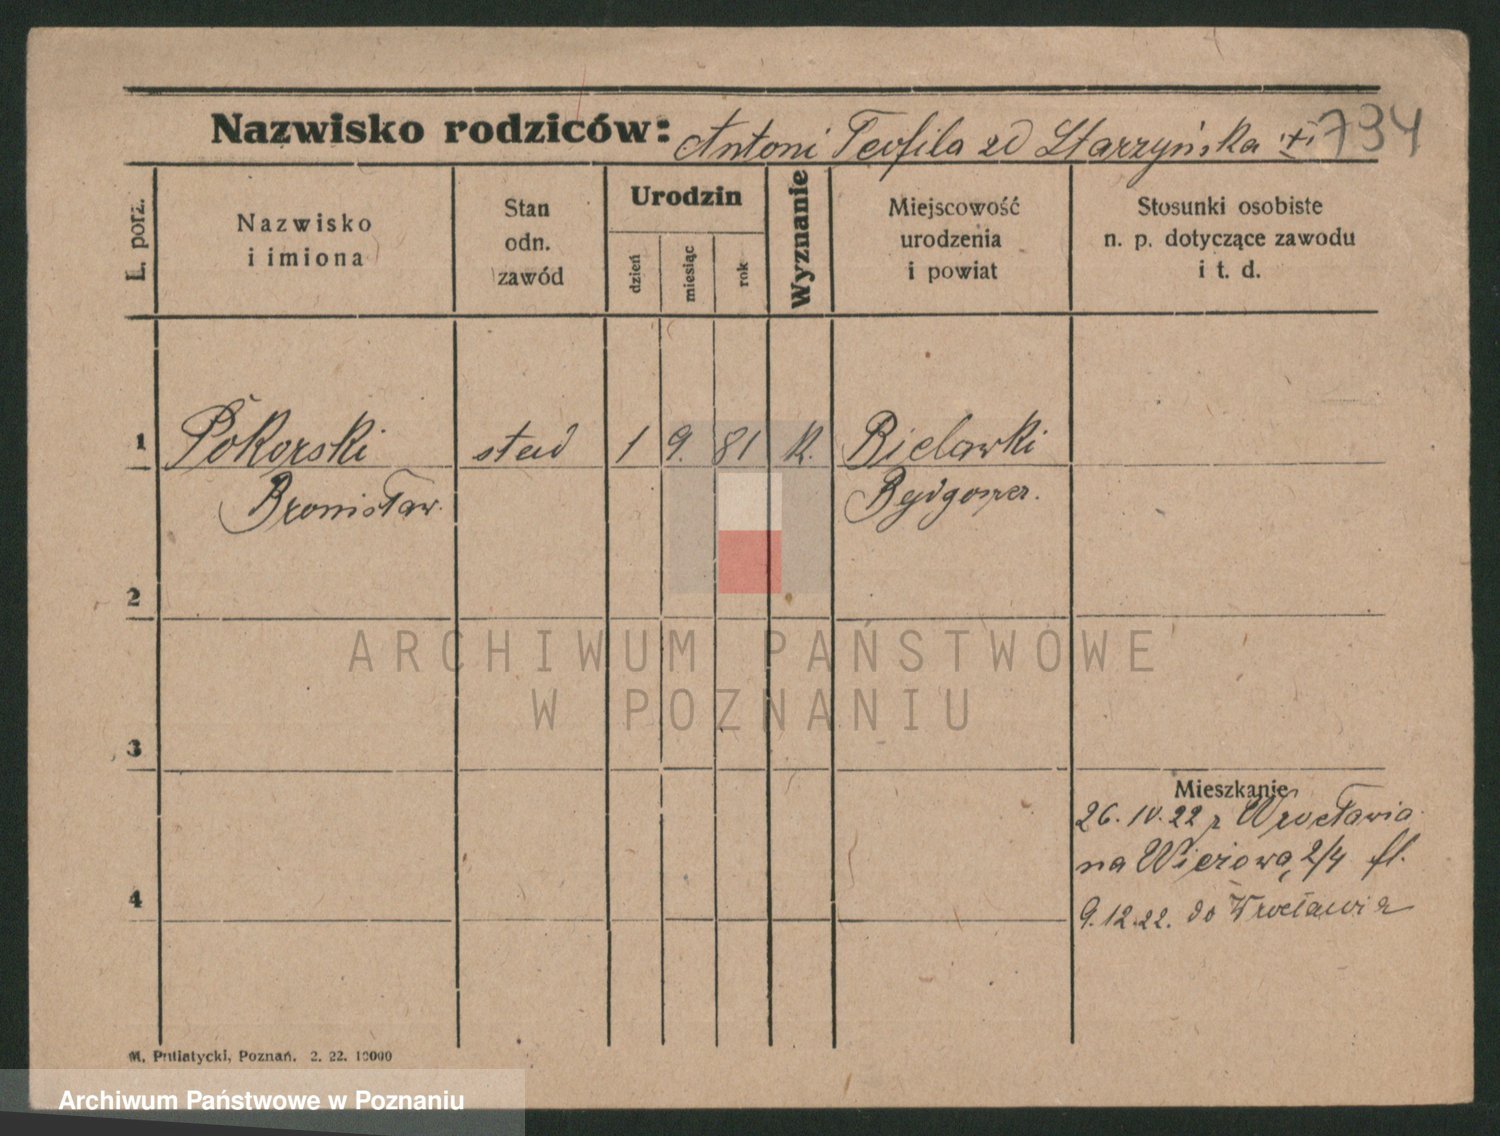 734
Nazwisko rodziców: Antoni Teofila zd Starzyńska
L. porz.
Nazwisko
i imiona
Stan
odn.
zawód
Urodzin
dzień
miesiąc
rok
Wyznanie
Miejscowość
urodzenia
i powiat
Stosunki osobiste
n. p. dotyczące zawodu
i t. d.
1 Pokorski 1 9. 81 K. Bielawki
Bronisław.
2
3
Mieszkanie
26. IV. 22 z Wrocławia
na 2/4 fl.
4
9. 12. 22. do Wrocławia
M. Putiatycki, Poznań. 2. 22. 10000
ARCHIWUM PAŃSTWOWE
W POZNANIU
Archiwum Państwowe w Poznaniu